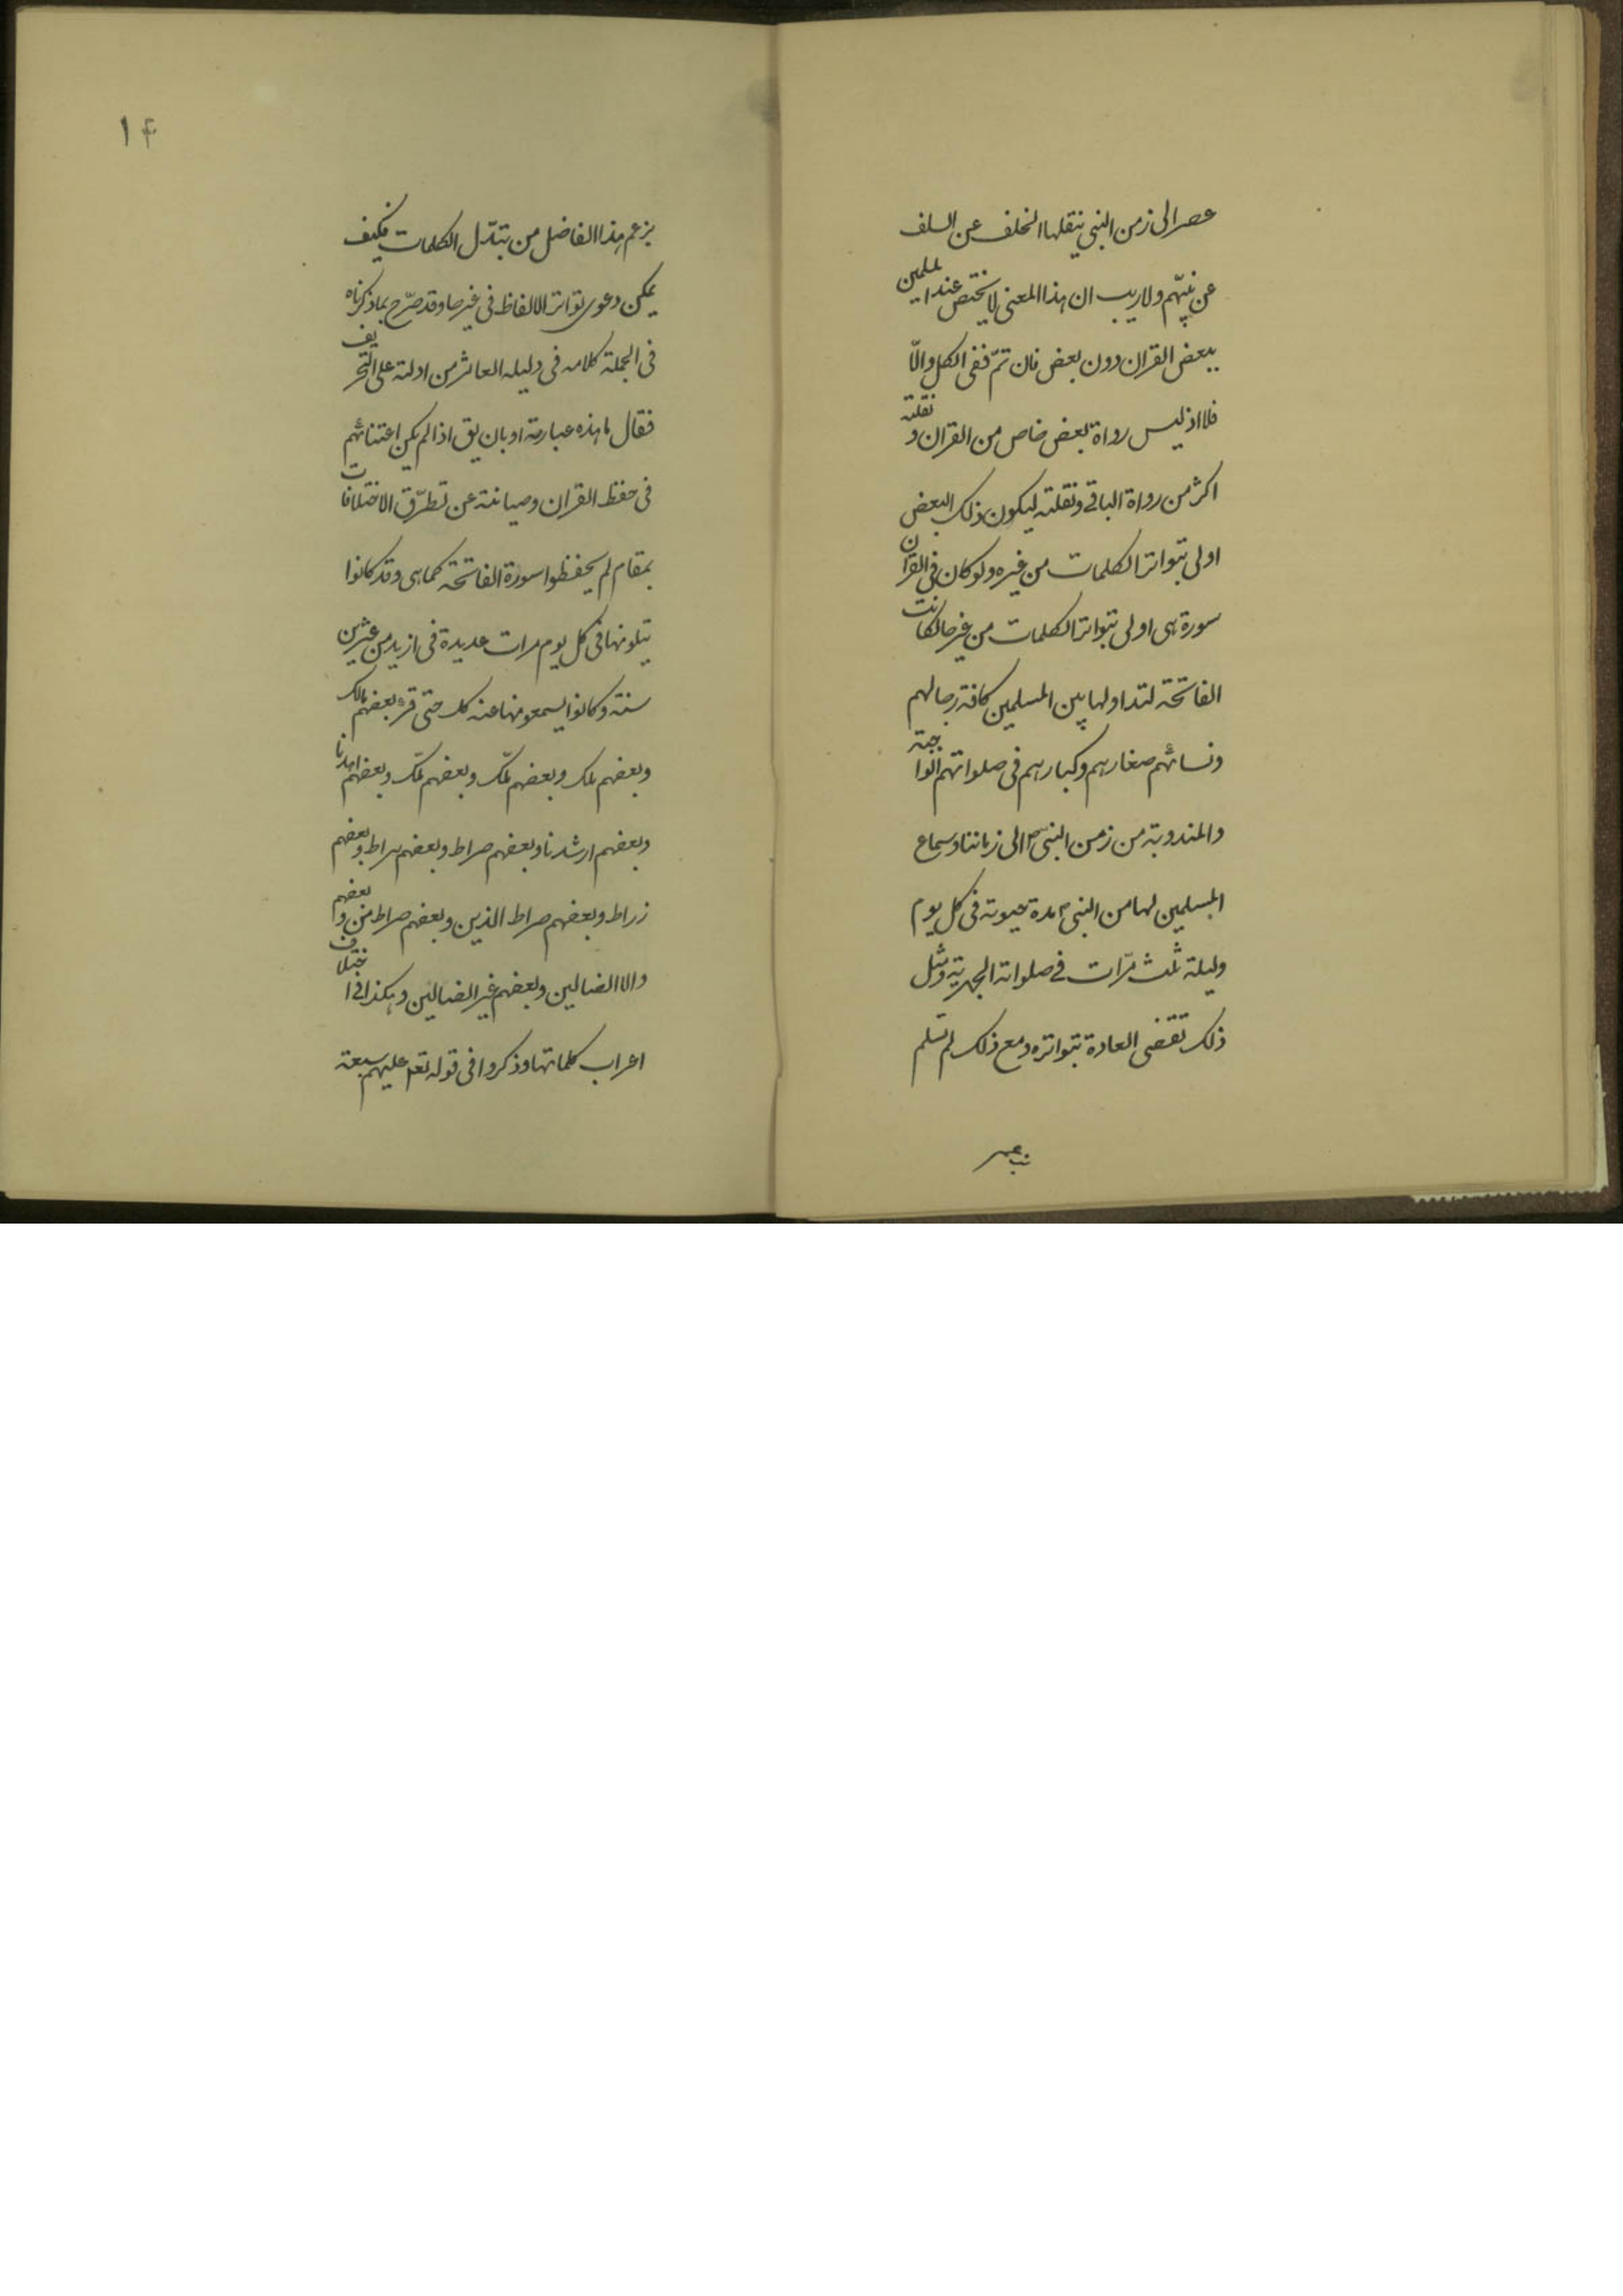 عصر الى زمن النبى ينقلها الخلف عن السلف
عن نبيّهم ولا ريب ان هذا المعنى لا يختص عند المسلمين
ببعض القران دون بعض فان تمّ ففى الكل والّا
فلا اذ ليس رواة بعض خاص من القران و نقلته
اكثر من رواة الباقى ونقلته ليكون ذلك البعض
اولى بتواتر الكلمات من غيره ولو كان فى القران
سورة هى اولى بتواتر الكلمات من غيرها لكانت
الفاتحة لتداولها بين المسلمين كافة رجالهم
ونسائهم صغارهم وكبارهم فى صلواتهم الواجبة
والمندوبة من زمن النبىّ ص الى زماننا وسماع
المسلمين لها من النبى مدة حيوته فى كل يوم
وليلة ثلث مرّات فى صلواته الجهرية ومثل
ذلك تقضى العادة بتواتره ومع ذلك لم تسلم
بزعم هذا الفاضل من تبدّل الكلمات فكيف
يمكن دعوى تواتر الالفاظ فى غيرها وقد صرّح بما ذكرناه
فى الجملة كلامه فى دليله العاشر من ادلته على التحريف
فقال ما هذه عبارته او بان يق اذا لم يكن اعتنائهم
فى حفظ القران وصيانته عن تطرّق الاختلافات
بمقام لم يحفظوا سورة الفاتحة كما هى وقد كانوا
يتلونها فى كل يوم مرات عديدة فى ازيد من عشرين
سنة وكانوا يسمعونها عنه كك حتى قرء بعضهم مالك
وبعضهم ملك وبعضهم ملّك وبعضهم ملك وبعضهم اهدنا
وبعضهم ارشدنا وبعضهم صراط وبعضهم سراط وبعضهم
زراط وبعضهم صراط الذين وبعضهم صراط من وبعضهم
ولا الضالين وبعضهم غير الضالين وهكذا فى اختلاف
اعراب كلماتها وذكروا فى قوله تعم عليهم سبعة